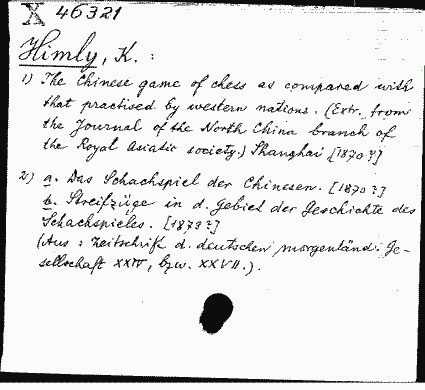 X 46321
Himly, K. :
1) The Chinese game of chess as compared with
that practised by western nations. (Extr. from
the Journal of the North China branch of
the Royal Asiatic society.) Shanghai [1870?]
2) a. Das Schachspiel der Chinesen. [1870?]
b. Streifzüge in d. Gebiet der Geschichte des
Schachspieles. [1873?]
(Aus: Zeitschrift d. deutschen morgenländ. Ge-
sellschaft XXIV, bzw. XXVII.).